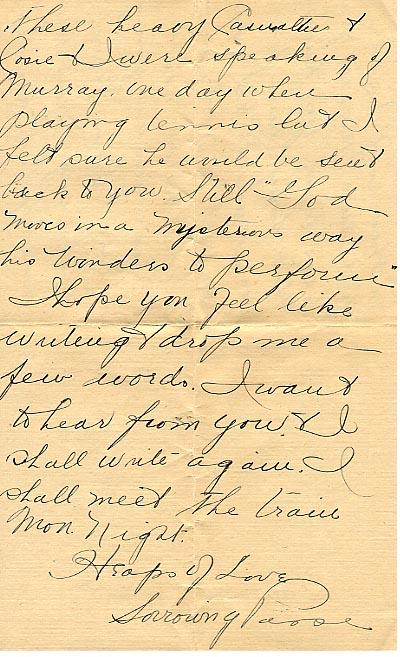 these heavy Casualties &
Rosie & I were speaking of
Murray. one day when
playing tennis but I
felt sure he would be sent
back to you. Still "God
moves in a mysterious way
his wonders to perform"
I hope you feel like
writing & drop me a
few words. I want
to hear from you. & I
shall write again. I
shall meet the train
Mon. Night.
Heaps of Love
Sorrowing